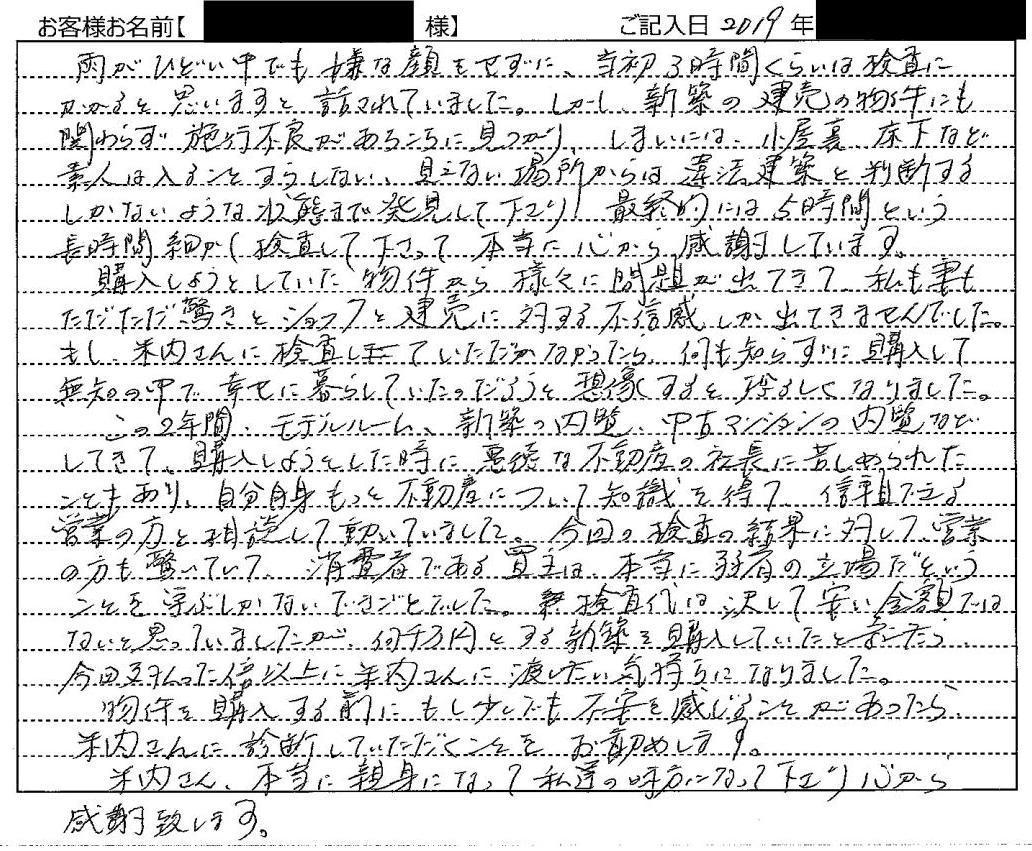 お客様お名前【 様】 ご記入日 2019年
雨がひどい中でも嫌な顔をせずに、当初3時間くらいは検査に
かかると思いますと話されていました。しかし、新築の建売の物件にも
関わらず施行不良があちこちに見つかり、しまいには、小屋裏、床下など
素人は入ることすらしない、見えない場所からは違法建築と判断する
しかないような状態まで発見して下さり、最終的には5時間という
長時間細かく検査して下さって本当に心から感謝しています。
購入しようとしていた物件から様々に問題が出てきて、私も妻も
ただただ驚きとショックと建売に対する不信感しか出てきませんでした。
もし、米内さんに検査していただかなかったら、何も知らずに購入して
無知の中で幸せに暮らしていたのだろうと想像すると恐ろしくなりました。
この2年間、モデルルーム、新築の内覧、中古マンションの内覧など
してきて、購入しようとした時に悪徳な不動産の社長に苦しめられた
こともあり、自分自身もっと不動産について知識を得て、信頼できる
営業の方と相談して動いていました。今回の検査の結果に対して、営業
の方も驚いていて、消費者である買主は、本当に弱者の立場だという
ことを学ぶしかないできごとでした。検査代は決して安い金額では
ないと思っていましたが、何千万円とする新築を購入していたと思ったら
今回支払った倍以上に米内さんに渡したい気持ちになりました。
物件を購入する前にもし少しでも不安を感じることがあったら、
米内さんに診断していただくことをお勧めします。
米内さん、本当に親身になって私達の味方になって下さり心から
感謝致します。